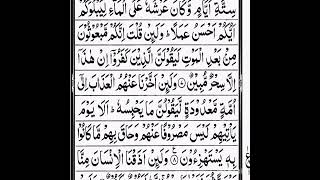 سِتَّةِ اَيَّامٍ وَّكَانَ عَرْشُهٗ عَلَى الْمَآءِ لِيَبْلُوَكُمْ
اَيُّكُمْ اَحْسَنُ عَمَلًا ؕ وَلَئِنْ قُلْتَ اِنَّكُمْ مَّبْعُوْثُوْنَ
مِنْۢ بَعْدِ الْمَوْتِ لَيَقُوْلَنَّ الَّذِيْنَ كَفَرُوْۤا اِنْ هٰذَاۤ
اِلَّا سِحْرٌ مُّبِيْنٌ ۝ وَلَئِنْ اَخَّرْنَا عَنْهُمُ الْعَذَابَ اِلٰٓى
اُمَّةٍ مَّعْدُوْدَةٍ لَّيَقُوْلُنَّ مَا يَحْبِسُهٗ ؕ اَلَا يَوْمَ
يَاْتِيْهِمْ لَيْسَ مَصْرُوْفًا عَنْهُمْ وَحَاقَ بِهِمْ مَّا كَانُوْا
بِهٖ يَسْتَهْزِءُوْنَ ۝۸ وَلَئِنْ اَذَقْنَا الْاِنْسَانَ مِنَّا